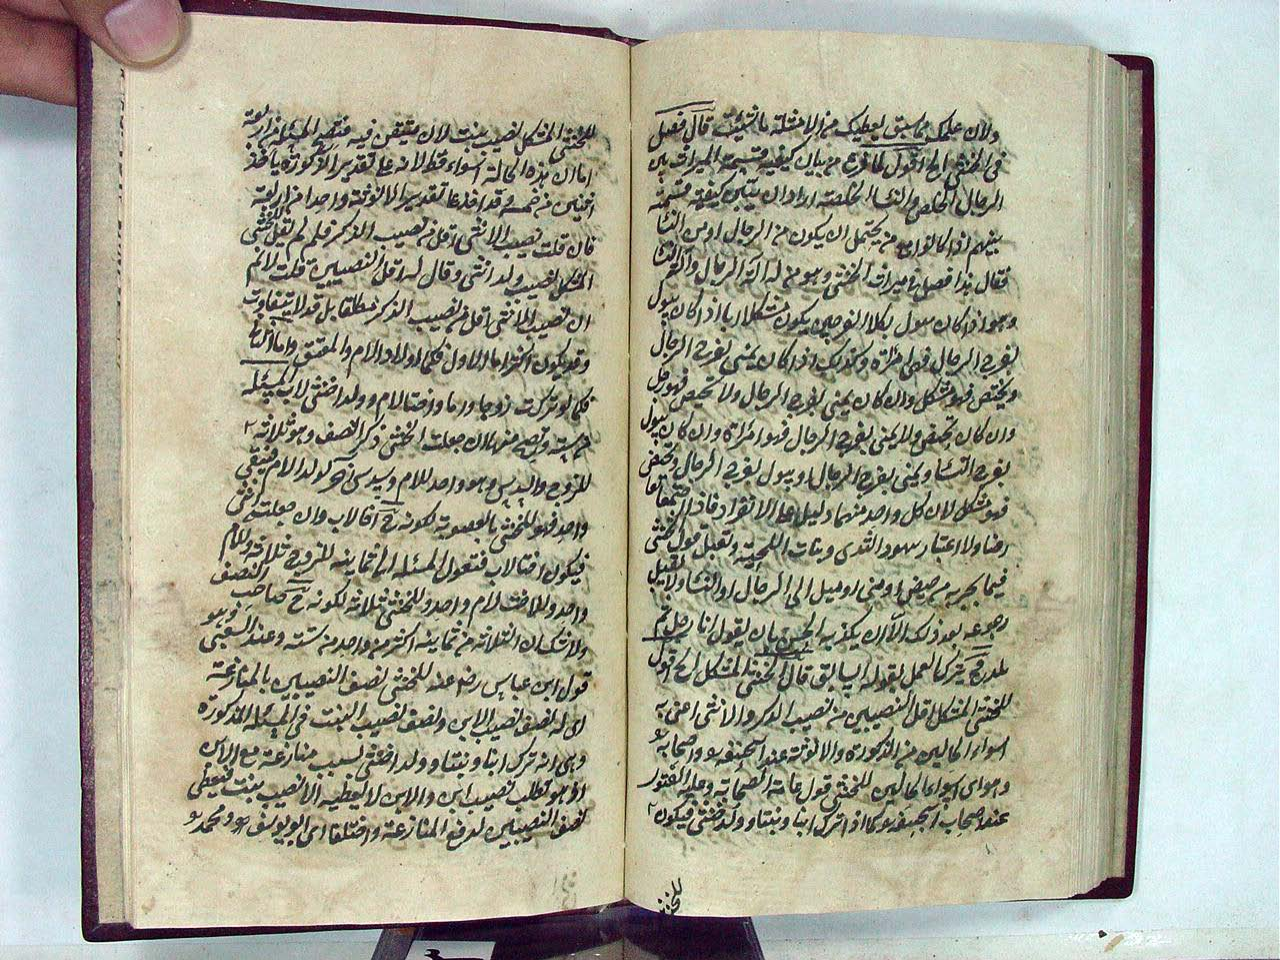 ولان علمك بما سبق يعطيك من الامثلة ما شئت قال فصل
في الخنثى الخ اقول لما فرغ من بيان كيفية قسمة الميراث بين
الرجال الخلص والنساء الخلصة اراد ان يبين كيفية قسمته
بينهم اذا كانوا مع من يحتمل ان يكون من الرجال او من النساء
فقال هذا فصل في ميراث الخنثى وهو من له آلة الرجال والنساء
وهو اذا كان يبول بكلا الفرجين يكون مشكلا اما اذا كان يبول
بفرج الرجال فهي امرأة وكذلك اذا كان يمنى بفرج الرجال
ويحيض فهو مشكل وان كان يمنى بفرج الرجال ولا تحيض فهو رجل
وان كان تحيض ولا يمنى بفرج الرجال فهو امرأة وان كان يبول
بفرج النساء ويمنى بفرج الرجال او يبول بفرج الرجال وتحيض
فهو مشكل لان كل واحد منهما دليل على الانفراد فاذا اجتمعا
ولا اعتبار بنهود الثدي ونبات اللحية وتقبل قول الخنثى
فيما يخبر به من حيض او منى او ميل الى الرجال او النساء ولا يقبل
رجوعه بعد ذلك الا ان يكذبه الحس بان يقول انا رجل ثم
يلد فح يترك العمل بقوله السابق قال للخنثى المشكل الخ اقول
للخنثى المشكل اقل النصيبين من نصيب الذكر والانثى اعني به
اسوء الحالين من الذكورة والانوثة عند ابي حنيفة واصحابه
وهو اي اسوء الحالين للخنثى قول عامة الصحابة وعليه الفتوى
عند اصحاب ابي حنيفة كما اذا ترك ابنا وبنتا وولد خنثى فيكون
للخنثى
للخنثى المشكل نصيب بنت لان متيقن فيه فتصح المسئلة من اربعة
اما ان هذه الحالة اسوء فقط لانه على تقدير الذكورة ياخذ
اثنين من خمسة وقد اخذ على تقدير الانوثة واحدا من اربعة
فان قلت نصيب الانثى اقل من نصيب الذكر فلم لم يقل للخنثى
المشكل نصيب ولد انثى وقال له اقل النصيبين قلت لا نم
ان نصيب الانثى اقل من نصيب الذكر مطلقا بل قد لا يتفاوت
وقد يكون اكثر اما الاول فكما اولاد الام والمعتق واما الثاني
فكما لو تركت زوجا واما واختا لام وولدا خنثى لاب المسئلة
من ستة وتصح منها لان جعلت الخنثى ذكرا النصف وهو ثلاثة
للزوج والسدس وهو واحد للام وسدس آخر لولد الام فيبقى
واحد فهو للخنثى بالعصوبة لكونه ح اخا لاب وان جعلته انثى
فيكون اختا لاب فتعول المسئلة الى ثمانية للزوج ثلاثة وللام
واحد وللاخت لام واحد وللخنثى ثلاثة لكونه ح صاحب النصف
ولا شك ان الثلاثة من ثمانية اكثر من واحد من ستة وعند الشعبي وهو
قول ابن عباس رضي عنه للخنثى نصف النصيبين بالمنازعة
اي له نصف نصيب الابن ونصف نصيب البنت في المسئلة المذكورة
وهي انه ترك ابنا وبنتا وولدا خنثى بسبب منازعة مع الابن
اذ هو تطلب نصيب ابن والابن لا يعطيه الا نصيب بنت فيعطى
نصف النصيبين لدفع المنازعة واختلفا اي ابو يوسف ومحمد